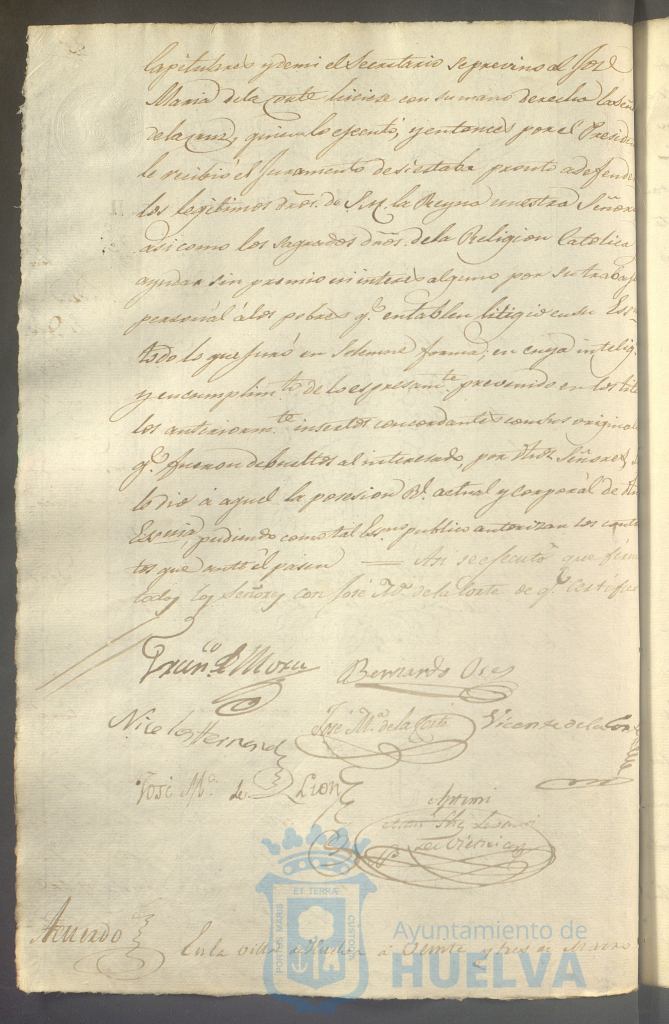 Capitulares y de mi el Secretario se previno al José
Maria de la Corte hiciera con su mano derecha la señ
de la cruz, quien lo ejecutó, y entonces por el Presiden
le recibió el Juramento de si estaba pronto a defende
los legitimos dros. de S. M. la Reyna nuestra Señora
asi como los sagrados dros. de la Religion Catolica
ayudar sin premio ni interes alguno por su trabajo
personal á los pobres q.e entablen litigio en su
todo lo que juró en Solemne forma; en cuya intelig.
y en cumplim.to de lo espresam.te prevenido en los tit
los anteriorm.te insertos concordantes con sus original
q.e fueron debueltos al interesado, por dhos. Señores
le dió á aquel la posesion Rl. actual y corporal de
Escnia, pudiendo como tal Esno. publico autorizar los contr
tos que ante él pasen = Asi se ejecutó que firm
todos los Señores con José M.a de la Corte de q.e Certifico
Fran.co de Mora Bernardo
Nicolas Hernand José M.a de la Corte Vicente de la Cor
José M.a de Leon
Antemi
Acuerdo En la villa de Huelva á veinte y tres de Marzo
PORTUS MARIS ET TERRÆ CUSTODIA
Ayuntamiento de
HUELVA